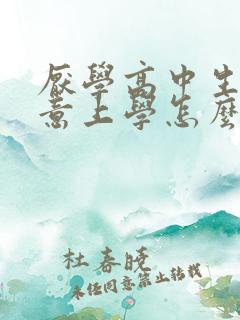 厭學高中生
意上學怎麼
杜春晓
未经同意禁止转载